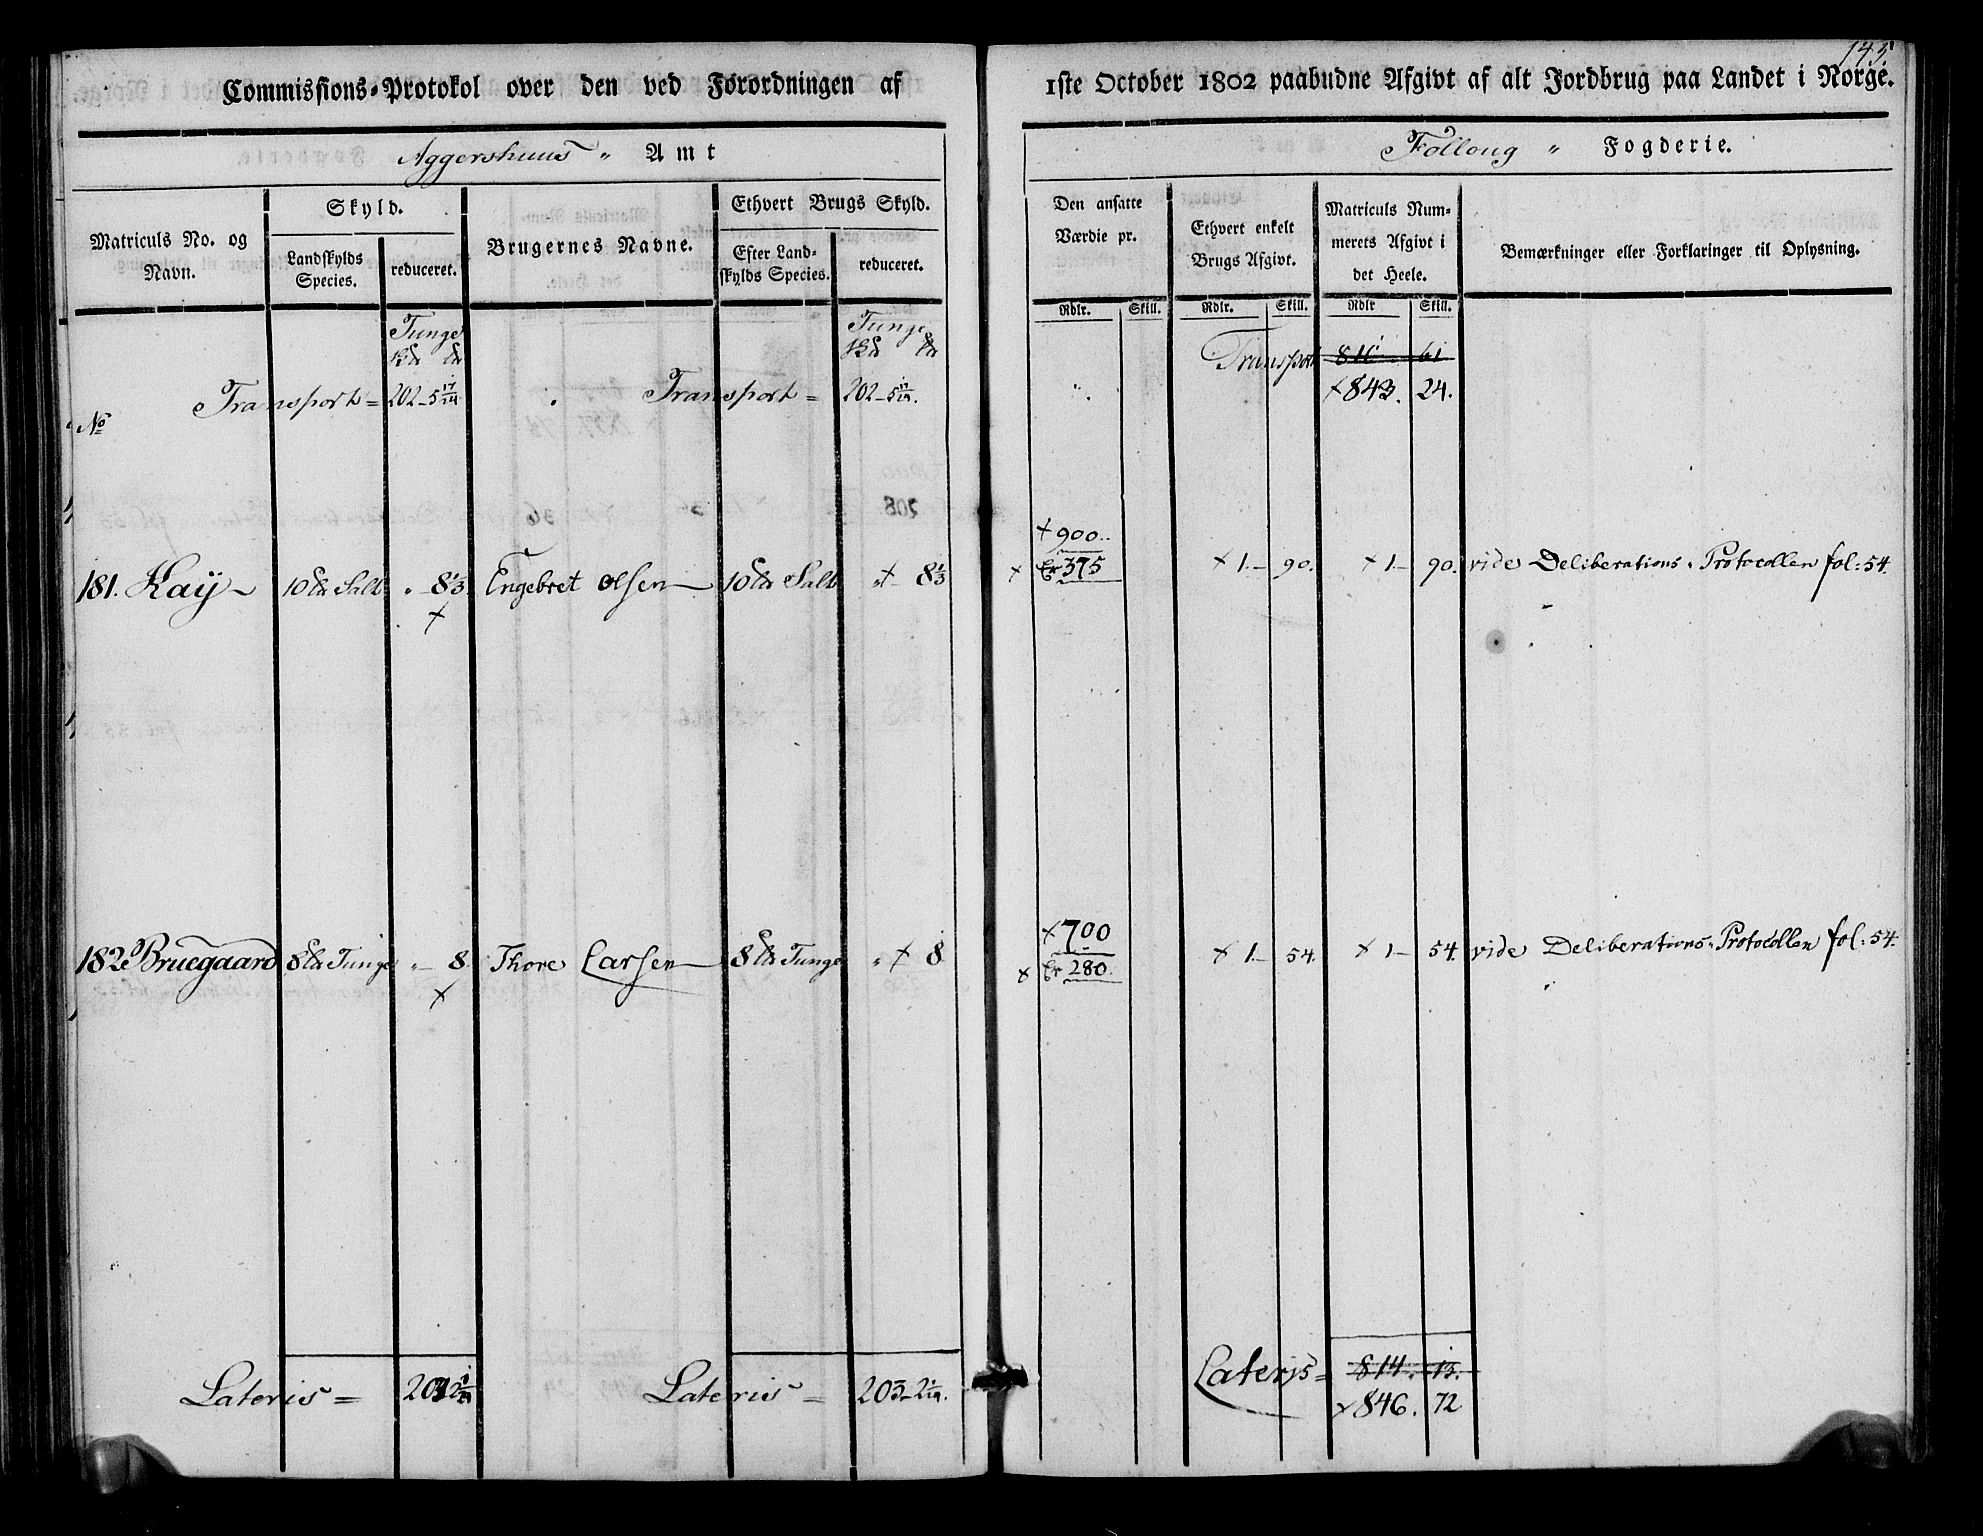 145.
Commissions-Protokol over den ved Forordningen af 1ste October 1802 paabudne Afgivt af alt Jordbrug paa Landet i Norge.
Aggershuus " Amt
Follong " Fogderie.
Matriculs No. og Navn.
Skyld.
Landskylds Species.
reduceret.
Brugernes Navne.
Ethvert Brugs Skyld.
Efter Landskylds Species.
reduceret.
Den ansatte Værdie pr.
Ethvert enkelt Brugs Afgivt.
Matriculs Nummerets Afgivt i det Heele.
Bemærkninger eller Forklaringer til Oplysning.
Rdlr. Skill. Rdlr. Skill. Rdlr Skill.
Tunge Tunge
Transport 811 61
No Transport = 202-5 17/24 Transport = 202-5 17/24. × 843. 24.
× 900..
181. Kaÿ 10 Salt " 8 1/3 Engebret Olsen 10 Salt " × 8 1/3 × Er 375 × 1.- 90. × 1- 90. vide Deliberations-Protocollen fol: 54.
×
× 700
182 Bruegaard 8 Tunge " - 8. Thore Larsen 8 Tunge " × 8 × Er 280. × 1.- 54. × 1- 54. vide Deliberations-Protocollen fol: 54.
×
Lateris = 203 2 1/24 Lateris = 203-2 1/24. Lateris = 814. 13.
× 846. 72